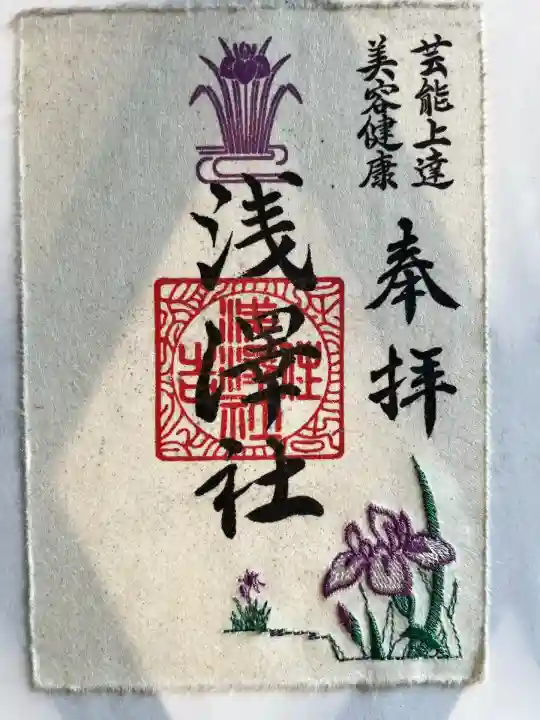 芸能上達
美容健康
奉拝
浅澤社
住吉
浅澤社